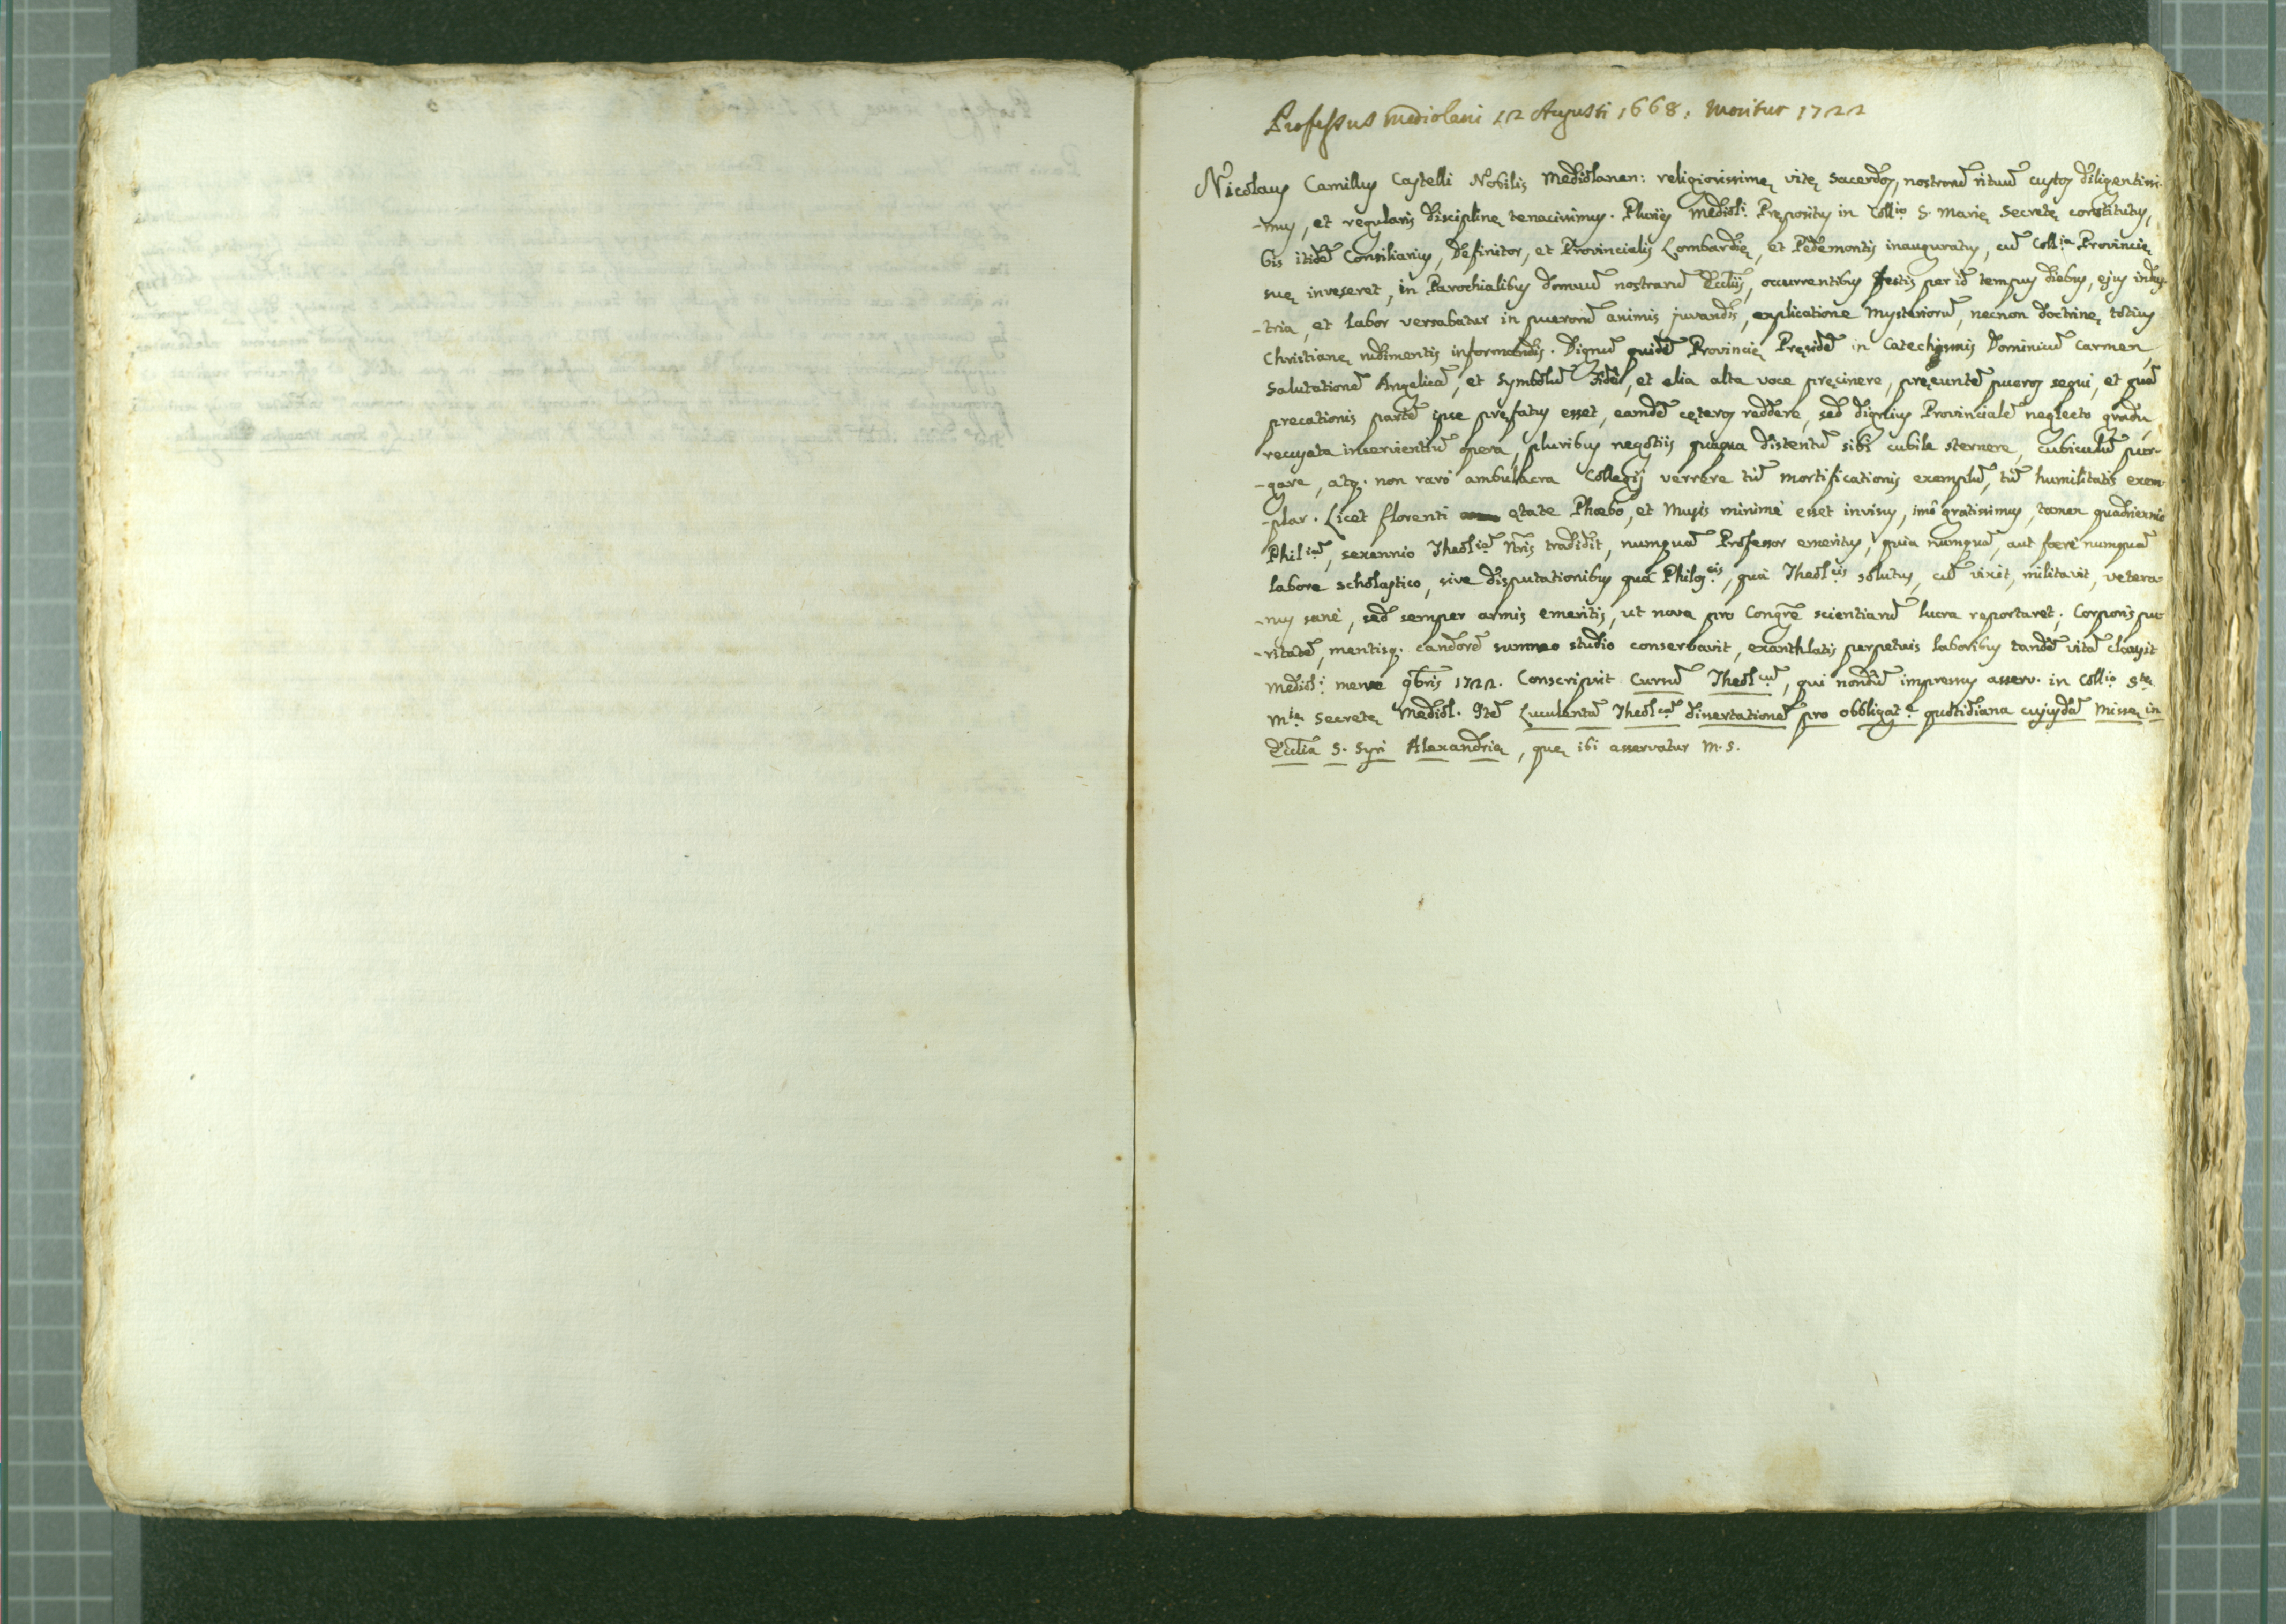 Professus Mediolani 12 Augusti 1668. Moritur 1722
Nicolaus Camillus Castelli Nobilis Mediolanen: religiosissimę vitę Sacerdos, nostrorũ rituũ custos diligentissi-
-mus, et regularis disciplinę tenacissimus. Pluries Mediol.i Prępositus in Coll.io S. Marię Secretę constitutus,
bis itidẽ Consiliarius, Definitor, et Provincialis Lombardię, et Pedemontis inauguratus, cũ Coll.ia Provincię
suę inviseret, in Parochialibus domuũ nostrarũ Ecclĩis, occurrentibus festis per id tempus diebus, ejus indus-
-tria, et labor versabatur in puerorũ animis juvandis, explicatione Mysteriorũ, necnon doctrinę totius
Christianę rudimentis informandis. Dignũ quidẽ Provincię Pręsidẽ in Catechismis Dominicũ Carmen,
Salutationẽ Angelicã, et Symbolũ Fidei, et alia alta voce pręcinere, pręeuntẽ pueros sequi, et quã
precationis partẽ ipse pręfatus esset, eamdẽ cęteros reddere, sed dignius Provincialẽ neglecto gradu,
recusata inservientiũ opera, pluribus negotiis quaqua distentũ sibi cubile sternere, cubiculũ pur-
-gare, atq. non raró ambulacra Collegij verrere tũ mortificationis exemplũ, tũ humilitatis exem-
-plar. Licet florenti ętate Phœbo, et Musis minimè esset invisus, imò gratissimus, tamen quadriennio
Phil.iã, sexennio Theol.iã Nr̃is tradidit, numquã Professor emeritus, quia numquã, aut ferè numquã
labore scholastico, sive disputationibus quà Philos.cis, quà Theol.cis solutus, cũ vixit, militavit, vetera-
-nus sanè, sed semper armis emeritis, ut nova pro Congr̃e scientiarũ lucra reportaret; Corporis pu-
-ritatẽ, mentisq. candorẽ summo studio conservavit, exanthlatis perpetuis laboribus tandẽ vitã clausit
Mediol.i mense 9b̃ris 1722. Conscripsit Cursũ Theol.cũ, qui nondũ impressus asserv. in Coll.io S.tę
M.ię Secretę Mediol. Itẽ Luculentã Theol.cã dissertationẽ pro obbligat.e quotidiana cujusdã Missę in
Ecclĩa S. Syri Alexandrię, quę ibi asservatur M.S.